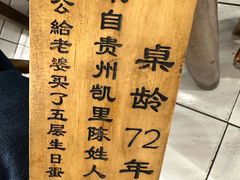 桌龄72年
自贵州凯里陈姓人
公给老婆买了五层生日蛋